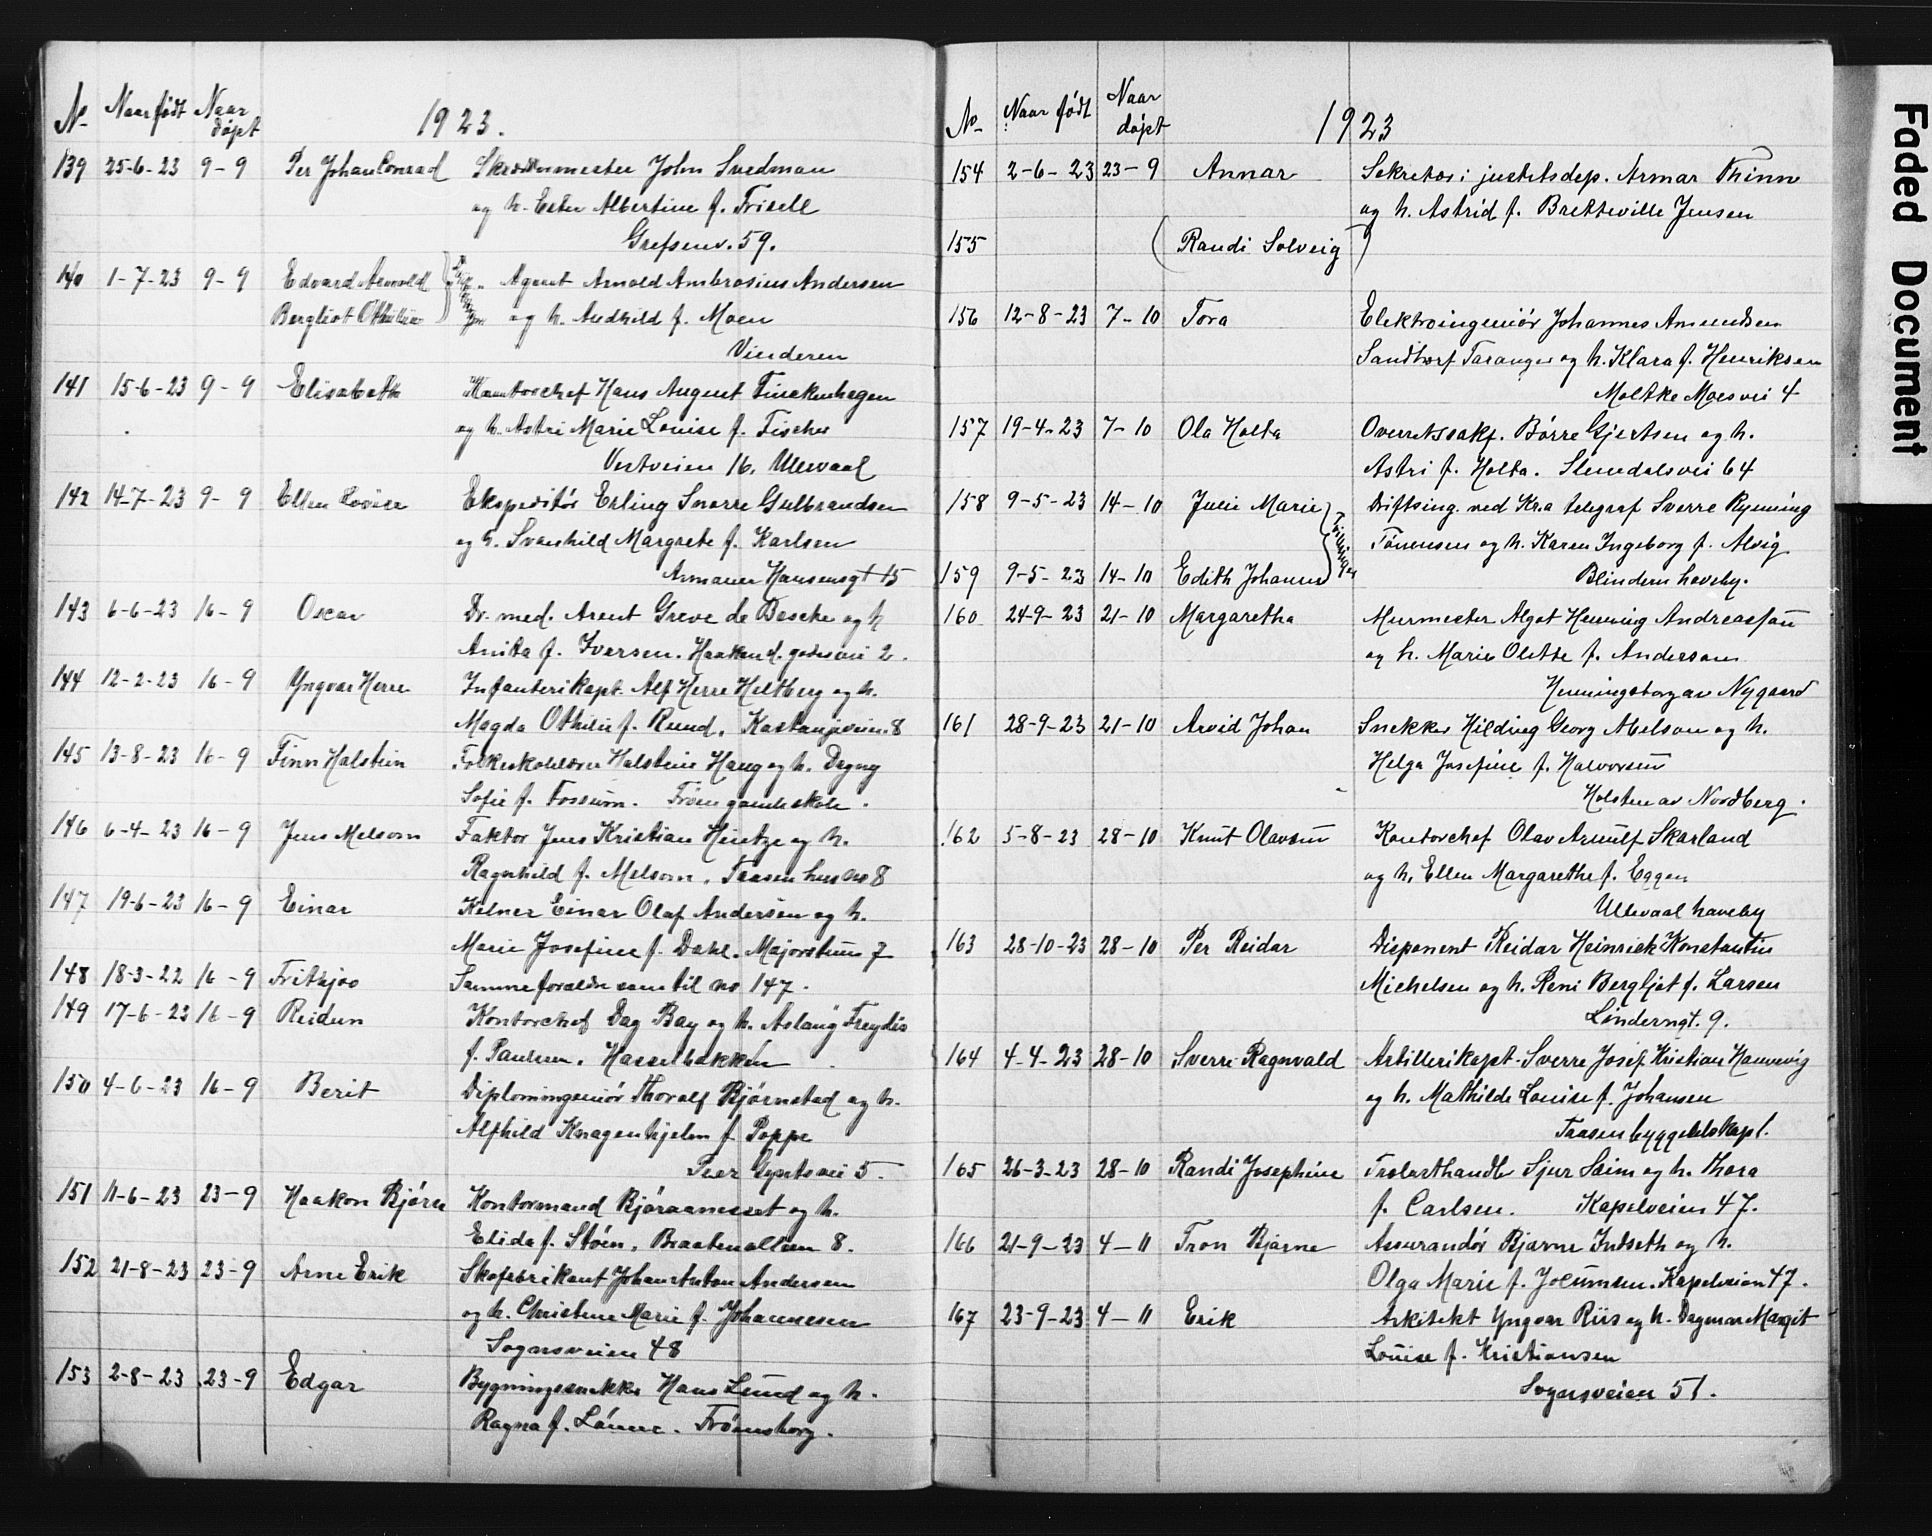 No Naar født Naar døpt 1923.
139 25-6-23 9-9 Per Johan Conrad Skræddermester John Svedman
og h. Ester Albertine f. Frisell
Grefsenv. 59.
140 1-7-23 9-9 Edvard Arnold Agent Arnold Ambrosius Andersen
Bergliot Othilie og h. Andhild f. Moen
Vinderen
141 15-6-23 9-9 Elisabeth Kontorchef Hans August Finckenhagen
og h. Astri Marie Louise f. Fischer
Vestveien 16, Ullevaal
142 14-7-23 9-9 Ellen Lovise Ekspeditør Erling Snorre Gulbrandsen
og h. Svanhild Margrete f. Karlsen
Armauer Hansensgt 15
143 6-6-23 16-9 Oscar Dr. med. Arent Greve de Besche og h
Anita f. Iversen. Haakon d. godesvei 2.
144 12-2-23 16-9 Yngvar Herre Infanterikapt. Alf Herre Heltberg og h.
Magda Othilie f. Rund. Kastanjeveien 8
145 13-8-23 16-9 Finn Halstein Folkeskolelærer Halstein Haug og h. Dagny
Sofie f. Fossum. Frøen gamle skole.
146 6-4-23 16-9 Jens Melsom Faktor Jens Kristian Heintze og h.
Ragnhild f. Melsom. Taasen hus no 8
147 19-6-23 16-9 Einar Kelner Einar Olaf Andersen og h.
Marie Josefine f. Dahl. Majorstuen 7
148 18-3-22 16-9 Frithjov Samme forældre som til no 147.
149 17-6-23 16-9 Reidun Kontorchef Dag Bay og h. Aslaug Freydis
f. Paulsen. Hasselbakken
150 4-6-23 16-9 Berit Diplomingeniør Thoralf Bjørnstad og h.
Alfhild Knagenhjelm f. Poppe
Peer Gyntsvei 5.
151 11-6-23 23-9 Haakon Bjørn Kontormand Bjøraanesset og h.
Elida f. Støen. Braatenalleen 8.
152 21-8-23 23-9 Arne Erik Skofabrikant Johan Anton Andersen
og h. Christine Marie f. Johannesen
Sognsveien 48
153 2-8-23 23-9 Edgar Bygningssnekker Hans Lund og h.
Ragna f. Frøensborg.
No Naar født Naar døpt 1923
154 2-6-23 23-9 Annar Sekretær i justitsdep. Armar Thinn
og h. Astrid f. Bretteville Jensen
155 (Randi Solveig)
156 12-8-23 7-10 Tora Elektroingeniør Johannes Amundsen
Sandtorf Taranger og h. Klara f. Henriksen
Moltke Moesvei 4
157 19-4-23 7-10 Ola Holta Overretssakf. Børre Gjertsen og h.
Astri f. Holta. Slemdalsvei 64
158 9-5-23 14-10 Julie Marie Tvillinger Driftsing. ved Kr.a telegraf Sverre Rynning
Tønnesen og h. Karen Ingeborg f. Alvig
159 9-5-23 14-10 Edith Johanne Blindern haveby.
160 24-9-23 21-10 Margaretha Murmester Algot Henning Andreasson
og h. Marie Olette f. Anderson
Henningsborg av Nygaard
161 28-9-23 21-10 Arvid Johan Snekker Hilding Georg Abelson og h.
Helga Josefine f. Halvorsen
Holsten av Nordberg.
162 5-8-23 28-10 Knut Olavson Kontorchef Olav Arnulf Skarland
og h. Ellen Margarethe f. Eggen
Ullevaal haveby
163 28-10-23 28-10 Per Reidar Disponent Reidar Heinrick Konstantin
Michelsen og h. Reni Bergljot f. Larsen
Linderngt. 9.
164 4-4-23 28-10 Sverre Ragnvald Artillerikapt. Sverre Josef Kristian Hannevig
og h. Mathilde Louise f. Johansen
Taasen byggeselskap.
165 26-3-23 28-10 Randi Josephine Trælasthandler Sjur Seim og h. Thora
f. Carlsen. Kapelveien 47.
166 21-9-23 4-11 Tron Bjarne Assurandør Bjarne Indseth og h.
Olga Marie f. Jocumsen. Kapelveien 47.
167 23-9-23 4-11 Erik Arkitekt Yngvar Riis og h. Dagmar Margit
Louise f. Kristiansen
Sognsveien 51.
Faded Document